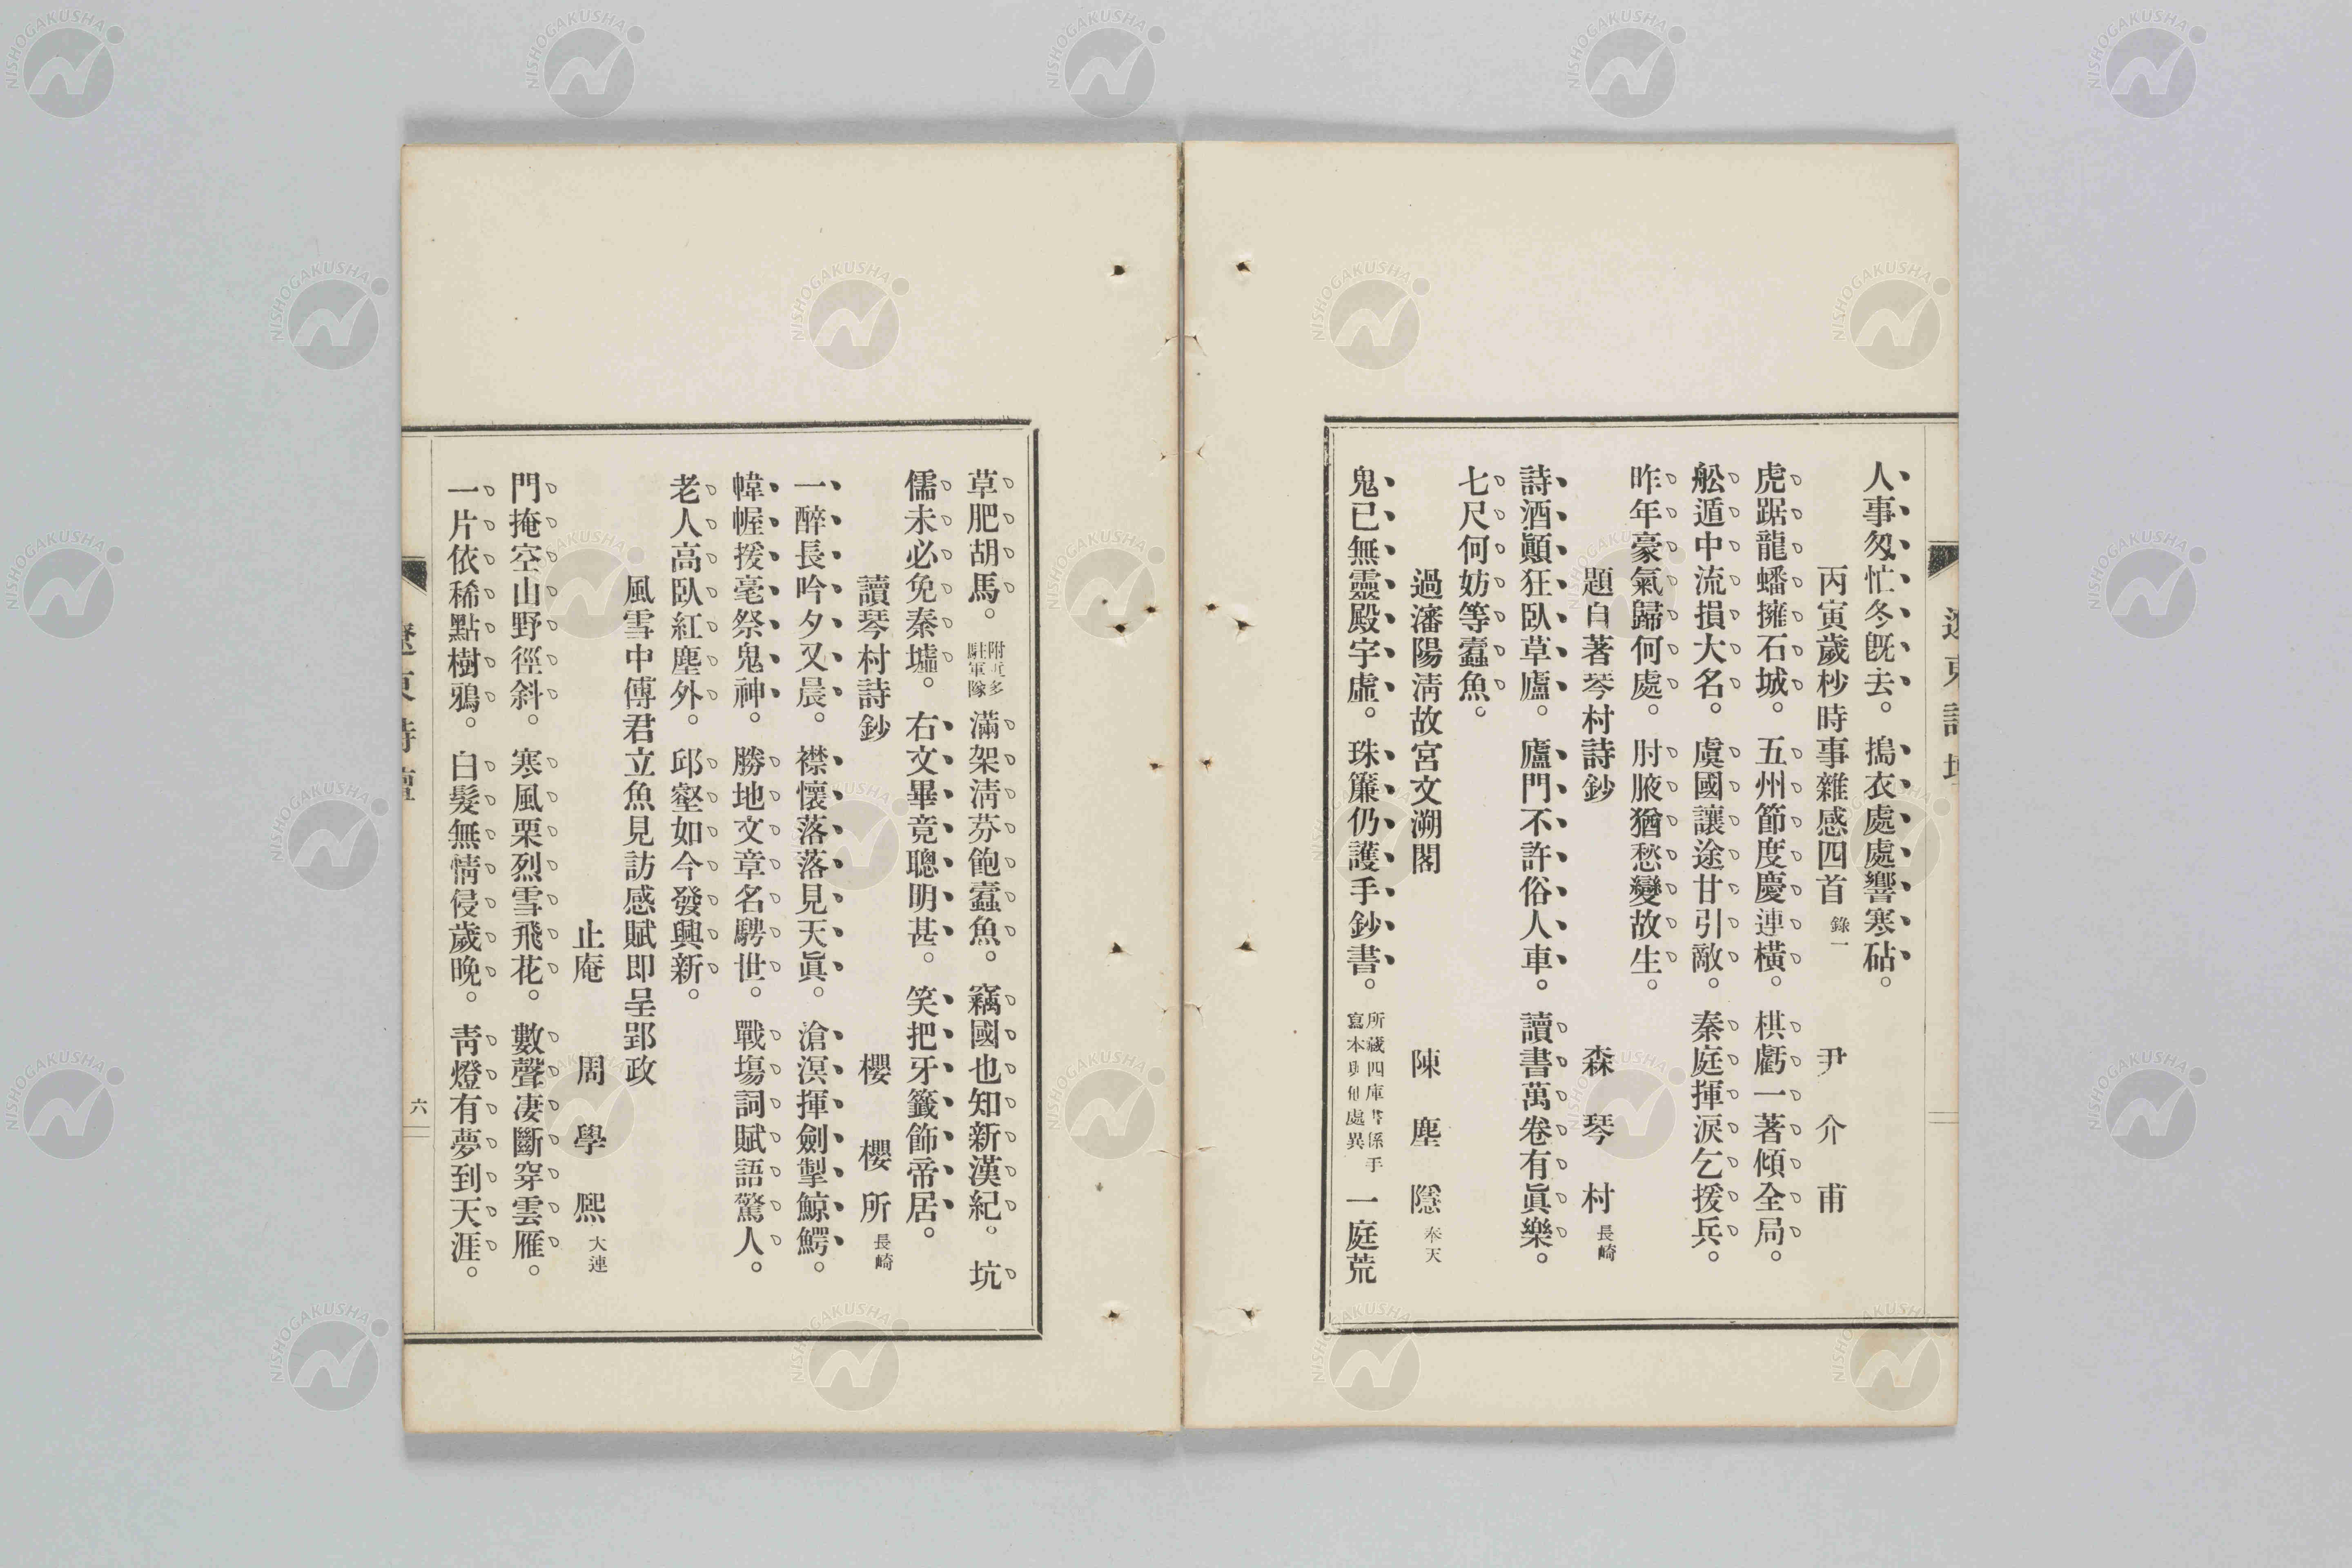 人事匆忙冬旣去。搗衣處處響寒砧。
丙寅歲杪時事雜感四首 錄一 尹介甫
虎踞龍蟠擁石城。五州節度慶連橫。棋虧一著傾全局。
舩遁中流損大名。虞國讓途甘引敵。秦庭揮淚乞援兵。
昨年豪氣歸何處。肘腋猶愁變故生。
題自著琴村詩鈔 森琴村 長崎
詩酒顚狂臥草廬。廬門不許俗人車。讀書萬卷有眞樂。
七尺何妨等蠧魚。
過瀋陽淸故宮文溯閣 陳塵隱 奉天
鬼已無靈殿宇虛。珠簾仍護手鈔書。所藏四庫書係手寫本與他處異 一庭荒
草肥胡馬。附近多駐軍隊 滿架淸芬飽蠧魚。竊國也知新漢紀。坑
儒未必免秦墟。右文畢竟聰明甚。笑把牙籤飾帝居。
讀琴村詩鈔 櫻櫻所 長崎
一醉長吟夕又晨。襟懷落落見天眞。滄溟揮劍掣鯨鰐。
幃幄援毫祭鬼神。勝地文章名騁世。戰場詞賦語驚人。
老人高臥紅塵外。邱壑如今發興新。
風雪中傅君立魚見訪感賦卽呈郢政
止庵 周學熙 大連
門掩空山野徑斜。寒風栗烈雪飛花。數聲凄斷穿雲雁。
一片依稀點樹鴉。白髮無情侵歲晚。靑燈有夢到天涯。
遼東詩壇
六
NISHOGAKUSHA